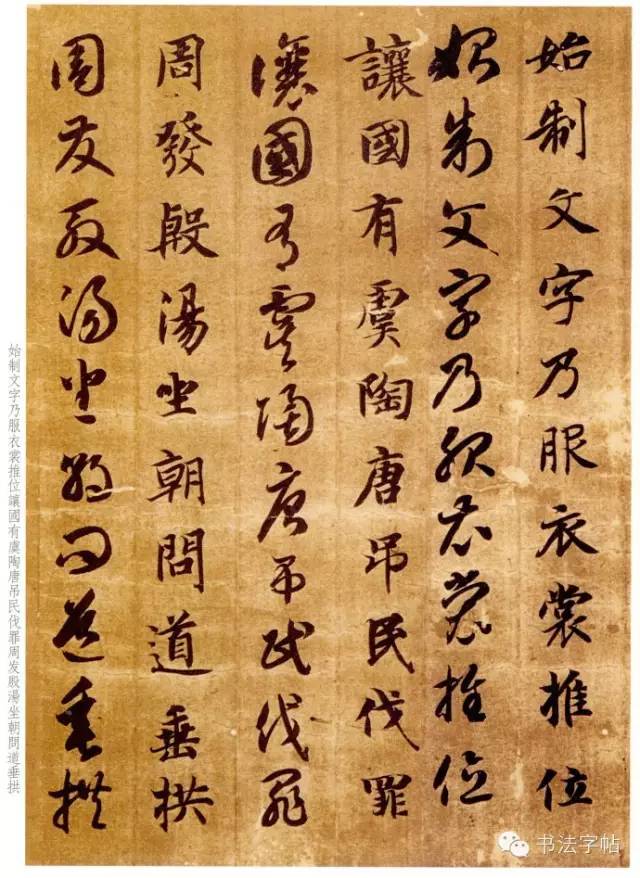 始制文字乃服衣裳推位
始制文字乃服衣裳推位
讓國有虞陶唐吊民伐罪
讓國有虞陶唐吊民伐罪
周發殷湯坐朝問道垂拱
周發殷湯坐朝問道垂拱
始制文字乃服衣裳推位讓國有虞陶唐吊民伐罪周发殷湯坐朝問道垂拱
书法字帖